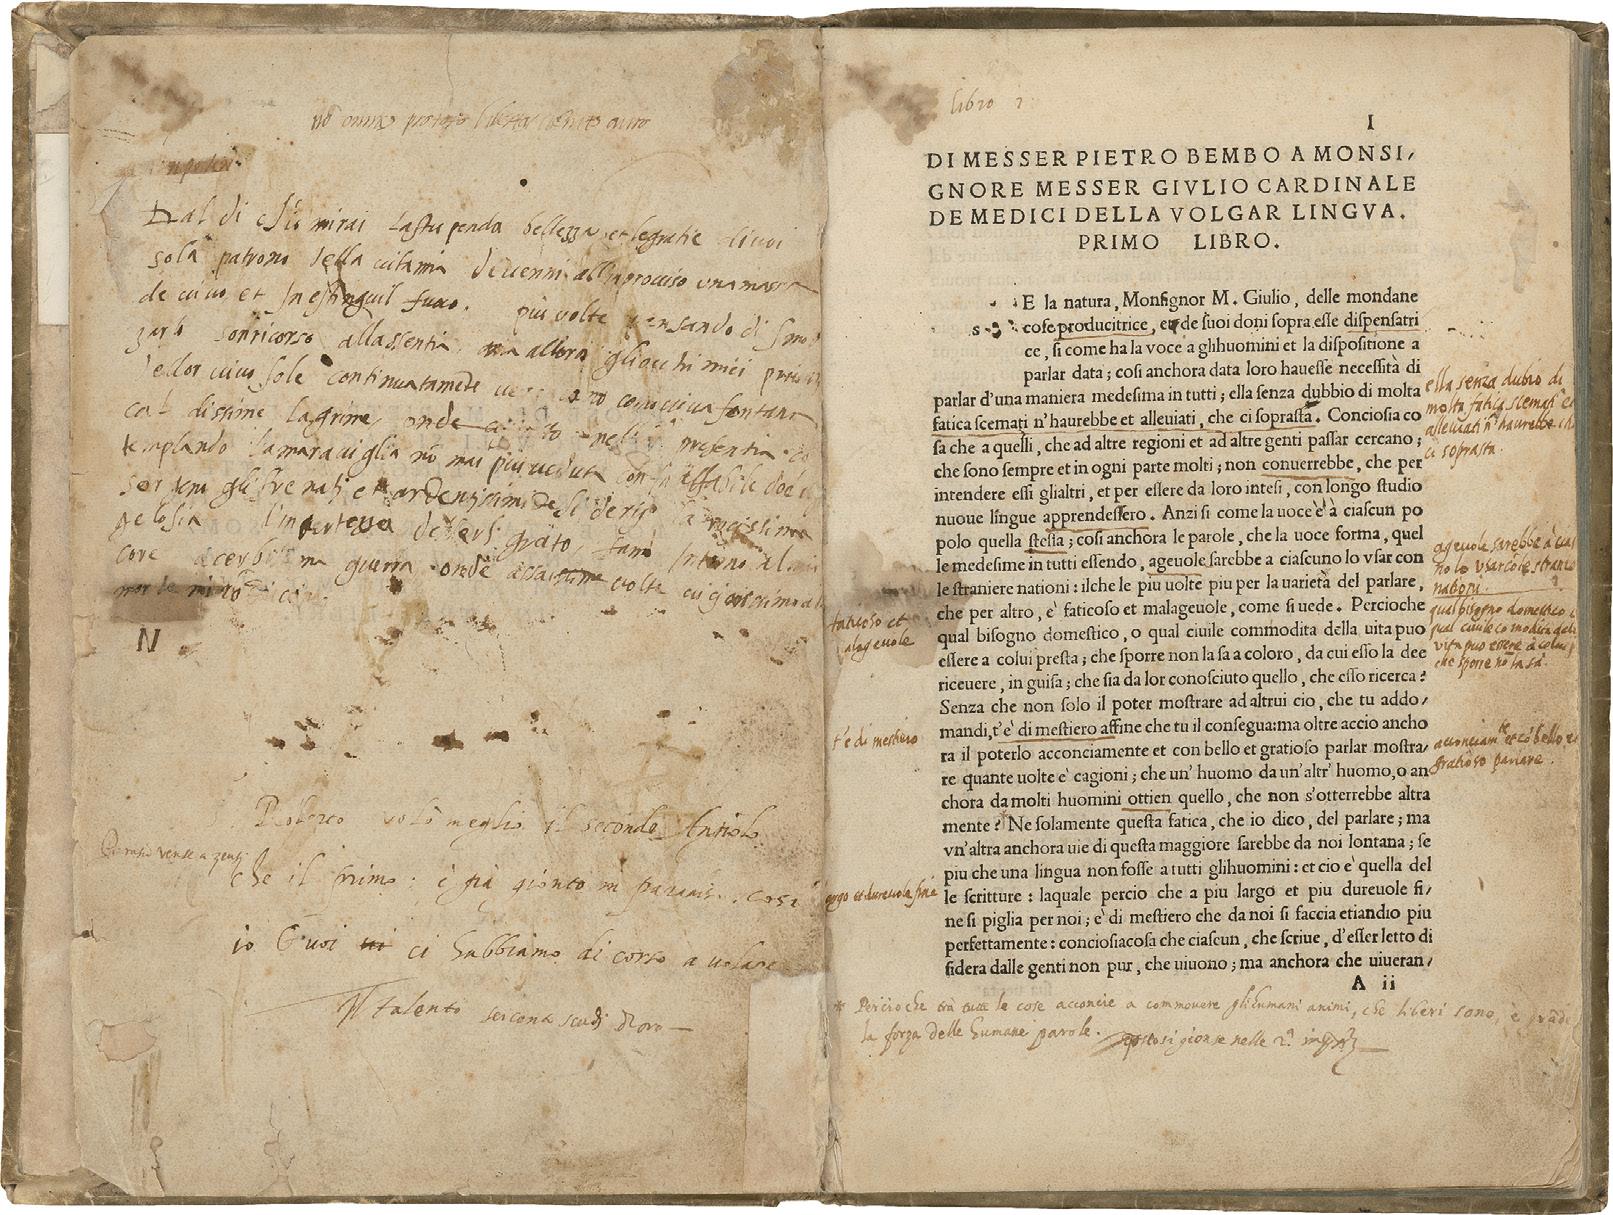 Dal di chio mirai la stupenda bellezza et le gratie di voi
sola patrona della vita mia devenni all improviso una massa
de vivo et inestinguil fuoco. più volte pensando di smor
zarlo son ricorso all assentia, ma allora gli occhi mici privi
dellor vivo sole continuamete come viva fontana
cal dissime lagrime, onde nella presentia co
templando la maraviglia nō mai piu veduta
gli sfrenati et ardentissimi desiderij la
gelosia l'incertezza de grato, fanno intorno al mio
core acerbissima guerra onde assaissime volte
N
Roberto volò meglio il secondo Antiolo
che il primo: è già gionto in . cosi
io Et voi ci habbiamo di corto a volare
Il talento sei cona scudi d'oro
libro 1
I
DI MESSER PIETRO BEMBO A MONSI,
GNORE MESSER GIVLIO CARDINALE
DE MEDICI DELLA VOLGAR LINGVA.
PRIMO LIBRO.
s E la natura, Monsignor M. Giulio, delle mondane
cose producitrice, et de suoi doni sopra esse dispensatri
ce, si come ha la voce a gli huomini et la dispositione a
parlar data; cosi anchora data loro hauesse necessità di
parlar d'una maniera medesima in tutti; ella senza dubbio di molta
fatica scemati n'haurebbe et alleuiati, che ci soprasta. Conciosia co
sa che a quelli, che ad altre regioni et ad altre genti passar cercano;
che sono sempre et in ogni parte molti; non conuerrebbe, che per
intendere essi glialtri, et per essere da loro intesi, con longo studio
nuoue lingue apprendessero. Anzi si come la uoce è à ciascun po
polo quella stessa; cosi anchora le parole, che la uoce forma, quel
le medesime in tutti essendo, ageuole sarebbe a ciascuno lo vsar con
le straniere nationi: ilche le piu uolte piu per la uarietà del parlare,
che per altro, è faticoso et malageuole, come si uede. Percioche
qual bisogno domestico, o qual ciuile commodita della uita puo
essere a colui presta; che sporre non la sa a coloro, da cui esso la dee
riceuere, in guisa; che sia da lor conosciuto quello, che esso ricerca?
Senza che non solo il poter mostrare ad altrui cio, che tu addo,
mandi, t'è di mestiero affine che tu il consegua: ma oltre accio ancho
ra il poterlo acconciamente et con bello et gratioso parlar mostra,
re quante uolte è cagioni; che un' huomo da un'altr' huomo, o an
chora da molti huomini ottien quello, che non s'otterrebbe altra
mente? Ne solamente questa fatica, che io dico, del parlare; ma
vn'altra anchora uie di questa maggiore sarebbe da noi lontana; se
piu che una lingua non fosse a tutti glihuomini: et cio è quella del
le scritture: laquale percio che a piu largo et piu dureuole fi,
ne si piglia per noi; è di mestiero che da noi si faccia etiandio piu
perfettamente: conciosiacosa che ciascun, che scriue, d'esser letto di
sidera dalle genti non pur, che uiuono; ma anchora che uiueran,
A ii
ella senza dubio di
molta fatica scemati et
alleviati n'haurebbe che
ci soprasta.
agevole sarebbe à cias
no lo vsar cō le strane
nationi.
qual bisogno domestico o
qual civile comodità dela
vita puo essere à colui p
che sporre nō la sa.
acconciamte et cō bello et
gratioso parlare.
faticoso et
alagevole
t'è di mestiero
argo et durevole fine
* Percioche trà tutte le cose acconcie a commovere gli humani animi, che liberi sono, è grāde
la forza delle humane parole. questo si gionse nelle 2ª